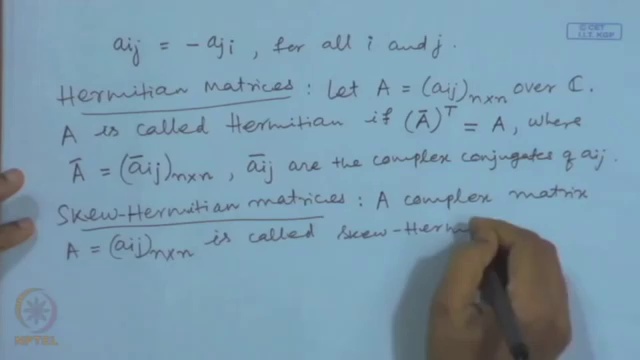 aij = -aji, for all i and j.
Hermitian Matrices : Let A = (aij)n×n over ℂ.
A is called Hermitian if (Ā)ᵀ = A, where
Ā = (āij)n×n, āij are the complex conjugates of aij.
Skew-Hermitian matrices : A complex matrix
A = (aij)n×n is called skew-Herm
© CET
I.I.T. KGP
NPTEL